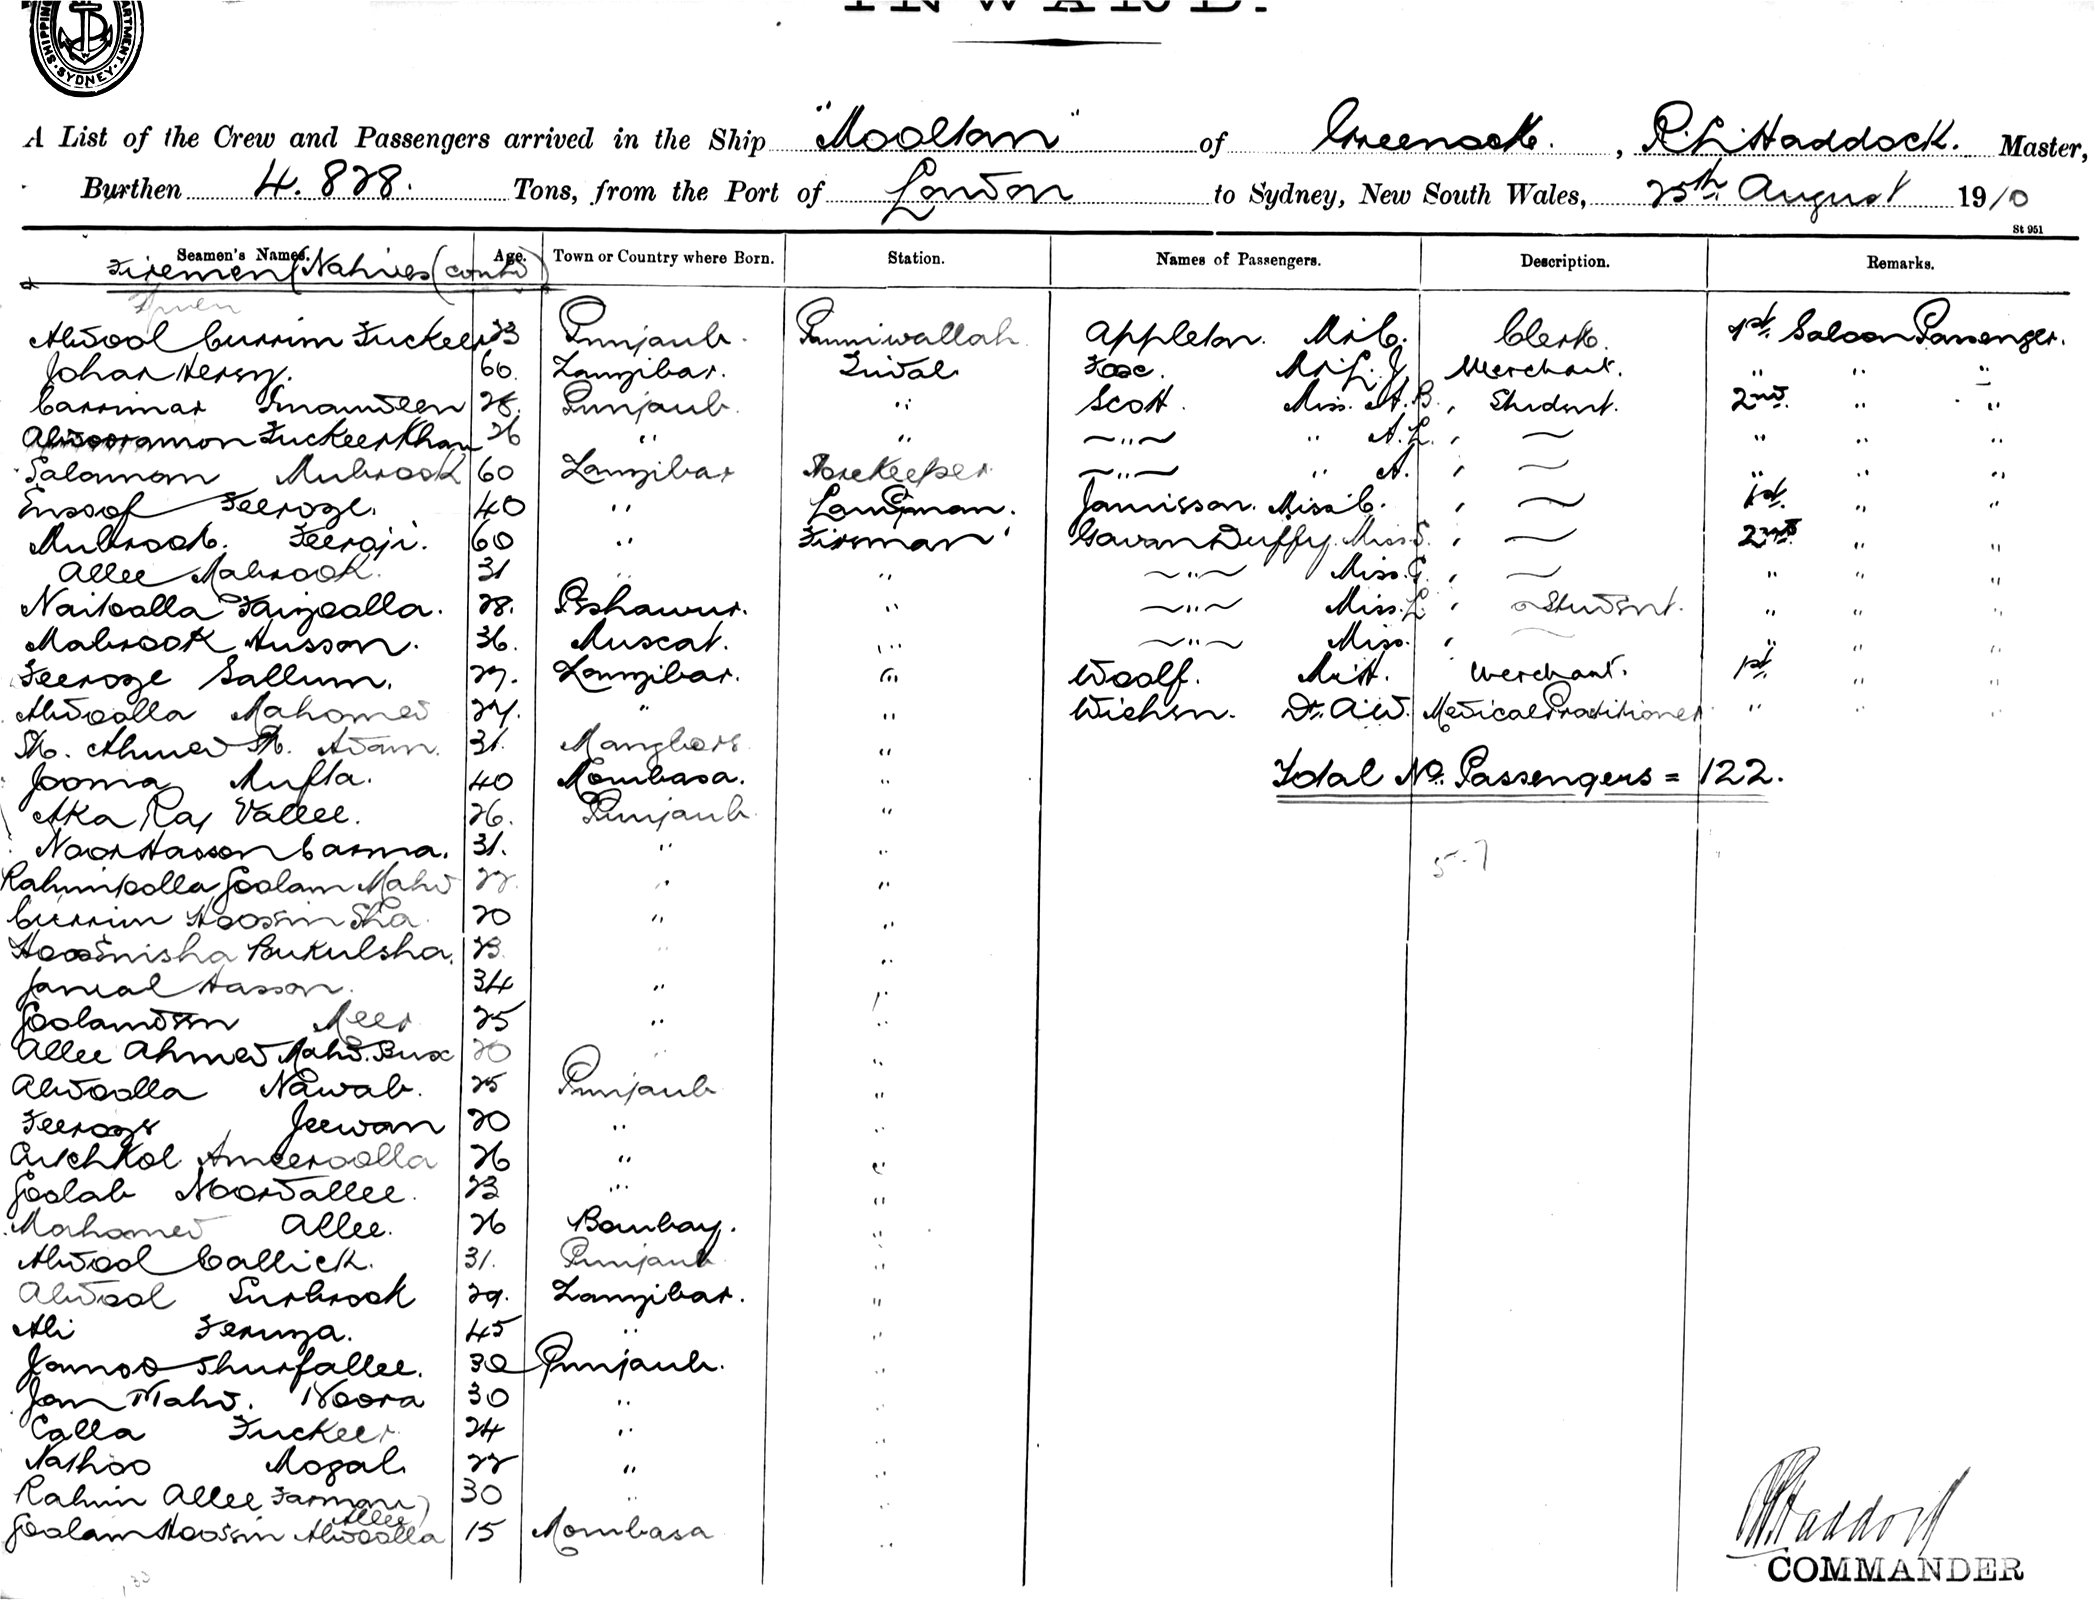 INWARD.
SHIPPING DEPARTMENT. SYDNEY.
A List of the Crew and Passengers arrived in the Ship "Mooltan" of Greenock. , R. L. Haddock. Master,
Burthen 4.828. Tons, from the Port of London to Sydney, New South Wales, 25th August 1910
St 951
Seamen's Names. Age. Town or Country where Born. Station. Names of Passengers. Description. Remarks.
Firemen (Natives (contd)
Abdool Currim Fuckeer 23 Punjaub. Punniwallah Appleton. Mr C. Clerk. 1st. Saloon Passenger.
Johar Hersy. 60. Zanzibar. Tindal Fox. Mr L. J. Merchant. " " "
Carrimar Imamdeen 28. Punjaub. " Scott. Miss. A. B. , Student. 2nd. " "
Abdooramon Fuckeer Khan 26 " " " " A. L. , " " "
Salamon Mubrook 60 Zanzibar Storekeeper " " A. , " " "
Ensoof Feeroze. 40 " Lampman. Jamisson. Miss C. , 1st. " "
Mubrook. Feeroji. 60 " Fireman Gavan Duffy. Miss S. , 2nd " "
Allee Mabrook. 31 " " " Miss. G. , " " "
Naitoalla Faizoalla. 28. Peshawur. " " Miss. L. , Student. " " "
Mabrook Husson. 36. Muscat. " " Miss. , " " "
Feeroze Sallum. 27. Zanzibar. " Woolf. Mr H. Merchant. 1st. " "
Abdoolla Mahomed 27. " " Wichsn. Dr. A. W. Medical Practitioner " " "
Sk. Ahmed Sk. Adam. 31. Manglore "
Jooma Mufta. 40 Mombasa. " Total No. Passengers = 122.
Aka Raj Vallee. 26. Punjaub "
Noor Hasson Carma. 31. " " 5-7
Rahimtoolla Goolam Mahd 22 " "
Currim Hoosein Sha. 20 " "
Hooseinisha Bukulsha. 23. " "
Jamal Hasson. 34 " "
Goolamdeen Meer 25 " "
Allee Ahmed Mahd. Bux 20 " "
Abdoolla Nawab. 25 Punjaub "
Feeroze Jeewan 20 " "
Ameeroolla 26 " "
Goolab Noordallee. 23 " "
Mahomed Allee. 26 Bombay. "
Abdool Callick. 31. Punjaub "
Abdool Surbrook 29. Zanzibar. "
Ali Feruza. 45 " "
Jamoo Shurfallee. 30 Punjaub. "
Jan Mahd. Noora 30 " "
Calla Fuckeer 24 " "
Nathoo Mogal. 22 " "
Rahim Allee Farman 30 " "
Allee
Goolam Hoosein Abdoolla 15 Mombasa "
R L Haddock
COMMANDER